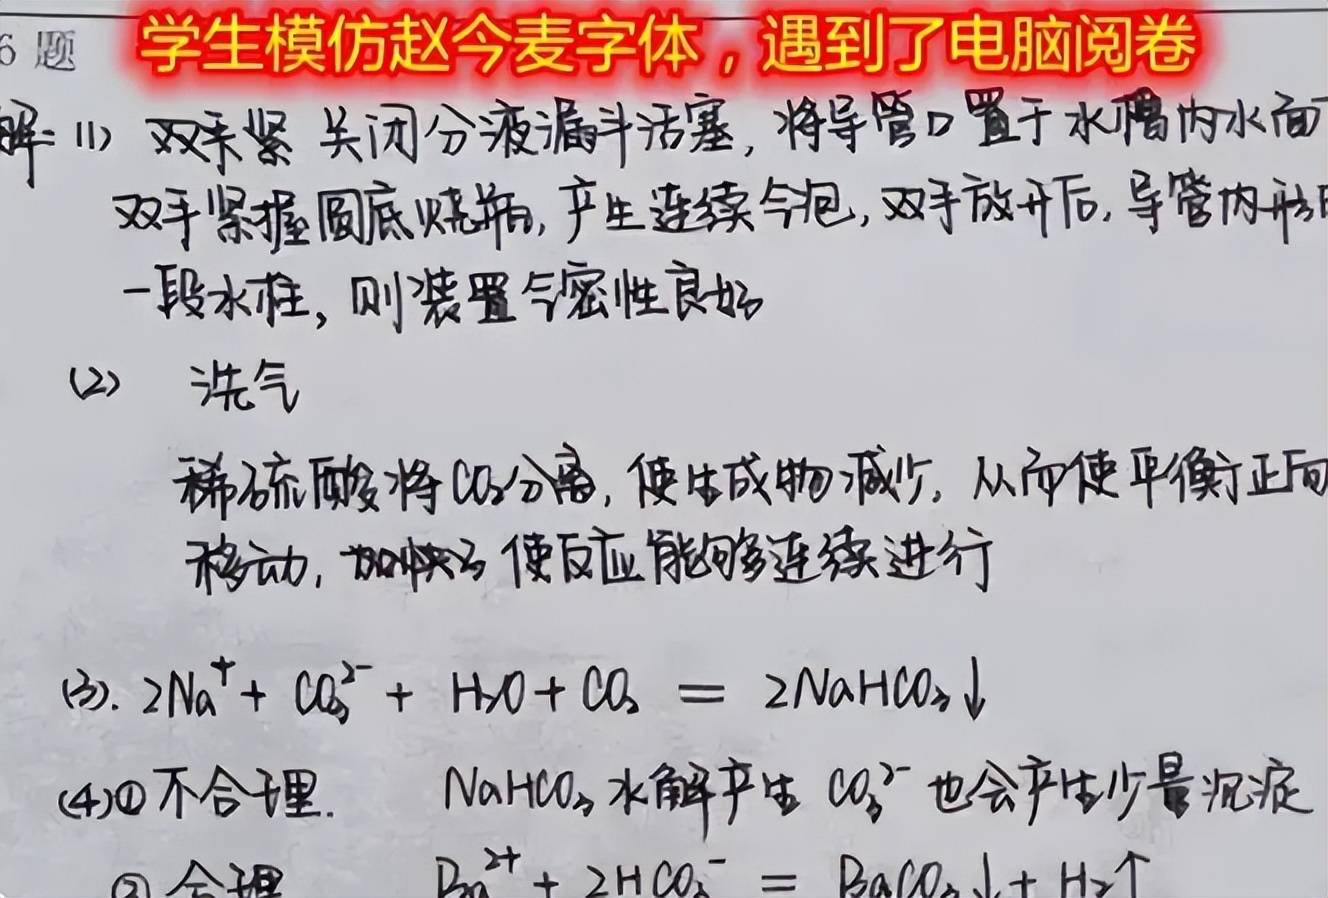 学生模仿赵今麦字体，遇到了电脑阅卷
6 题
解: (1) 双手紧 关闭分液漏斗活塞, 将导管口置于水槽内水面
双手紧握圆底烧瓶, 产生连续气泡, 双手放开后, 导管内形
一段水柱, 则装置气密性良好
(2) 洗气
稀硫酸将CO₂分离, 使生成物减少, 从而使平衡正向
移动, 加快了 使反应能够连续进行
(3). 2Na⁺ + CO₃²⁻ + H₂O + CO₂ = 2NaHCO₃↓
(4)① 不合理. NaHCO₃ 水解产生 CO₃²⁻ 也会产生少量沉淀
② 合理 Ba²⁺ + 2HCO₃⁻ = BaCO₃↓ + H₂↑